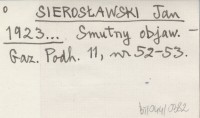 SIEROSŁAWSKI Jan
1923... Smutny objaw. —
Gaz. Podh. 11, nr 52-53.